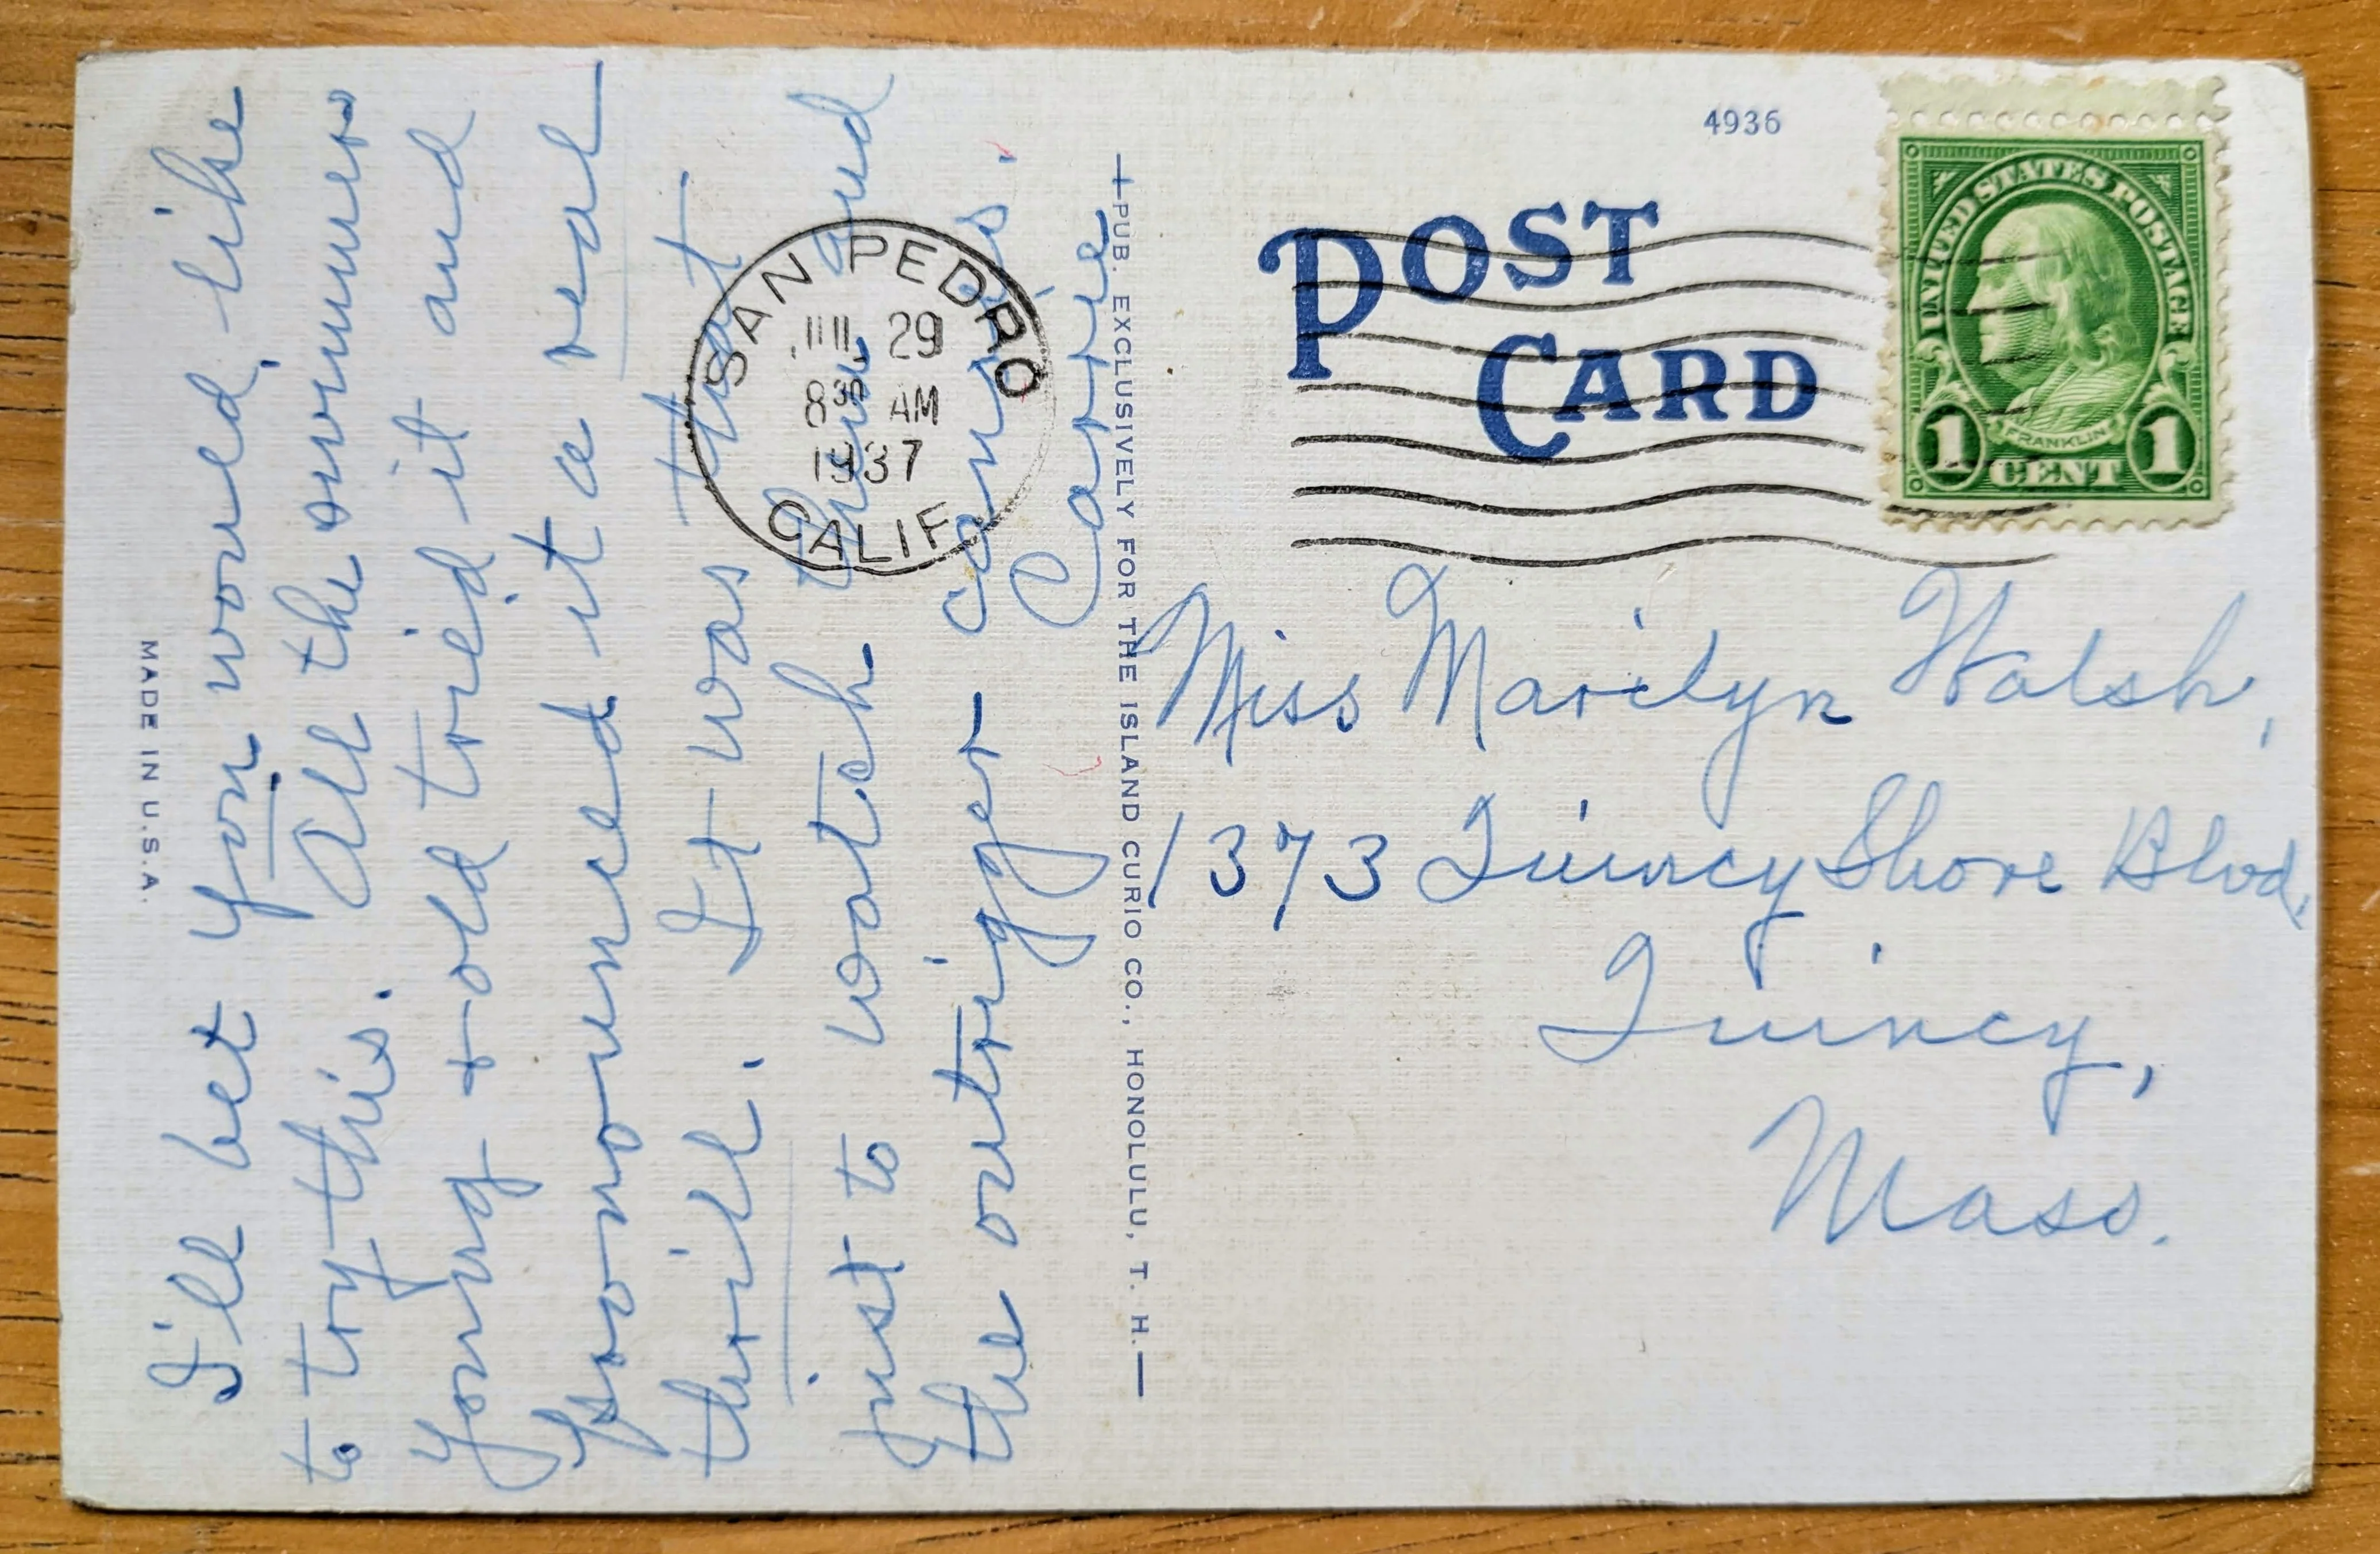 MADE IN U.S.A.
I'll bet you would like
to try this. All the swimmers
young & old tried it and
pronounced it a real
thrill. It was that
just to watch them and
the outrigger canoes.
Carrie
PUB. EXCLUSIVELY FOR THE ISLAND CURIO CO., HONOLULU, T. H.
4936
POST
CARD
SAN PEDRO
JUL 29
8 30 AM
1937
CALIF.
UNITED STATES POSTAGE
FRANKLIN
1 CENT 1
Miss Marilyn Walsh,
1373 Quincy Shore Blvd.
Quincy,
Mass.